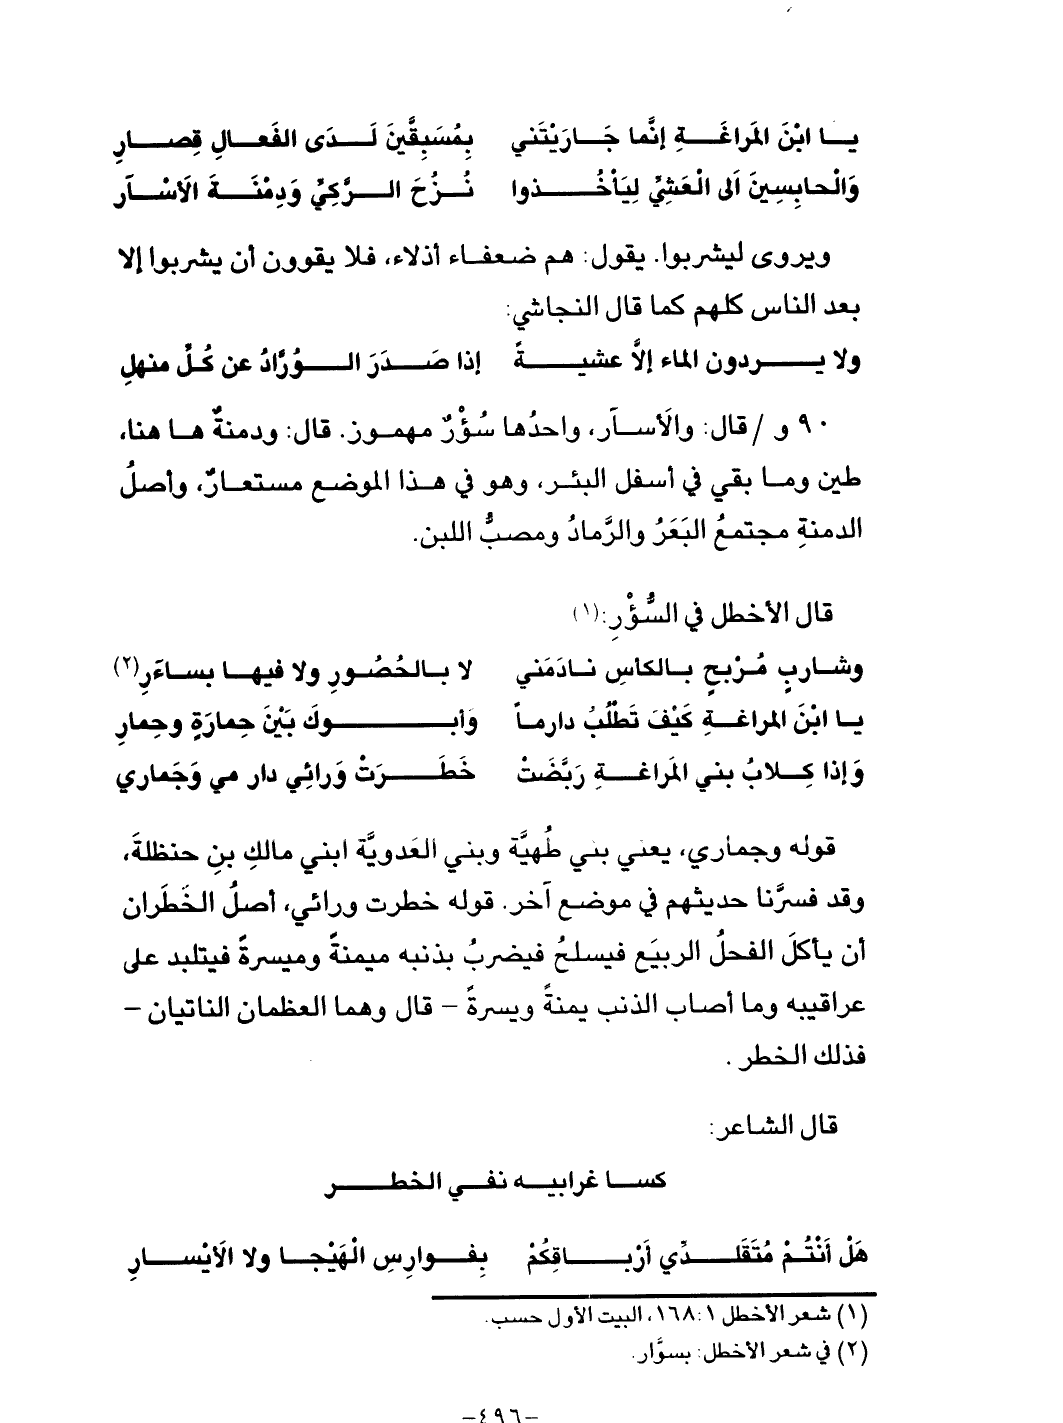 يا ابْنَ المَراغَةِ إنَّما جَارَيْتَني بِمُسَبِقَّينَ لَدَى الفَعالِ قِصارِ
وَالْحابِسِينَ اَلى الْعَشِيِّ لِيَأْخُذوا نُزُحَ الرَّكِيِّ وَدِمْنَةَ الَاسْآر
ويروى ليشربوا. يقول: هم ضعفاء أذلاء، فلا يقوون أن يشربوا إلا
بعد الناس كلهم كما قال النجاشي:
ولا يردون الماء إلاَّ عشيةً إذا صَدَرَ الوُرَّادُ عن كُلِّ منهلِ
٩٠ و / قال: والَأسآر، واحدُها سُؤْرٌ مهموز. قال: ودمنةٌ ها هنا،
طين وما بقي في أسفل البئر، وهو في هذا الموضع مستعارٌ، وأصلُ
الدمنةِ مجتمعُ البَعَرُ والرَّمادُ ومصبُّ اللبن.
قال الأخطل في السُّؤْرِ:(١)
وشاربٍ مُرْبحٍ بالكاسِ نادَمَني لا بالحُصُورِ ولا فيها بساءَرِ(٢)
يا ابْنَ المراغةِ كَيْفَ تَطْلُبُ دارماً وَأبوكَ بَيْنَ حِمارَةٍ وحِمارِ
وَإذا كِلابُ بني المَراغةِ رَبَّضَتْ خَطَرَتْ وَرائِي دار مي وَجَماري
قوله وجماري، يعني بني طُهيَّة وبني العَدويَّة ابني مالكِ بنِ حنظلةَ،
وقد فسرَّنا حديثهم في موضع آخر. قوله خطرت ورائي، أصلُ الخَطَران
أن يأكلَ الفحلُ الربيَع فيسلحُ فيضربُ بذنبه ميمنةً وميسرةً فيتلبد على
عراقيبه وما أصاب الذنب يمنةً ويسرةً – قال وهما العظمان الناتيان –
فذلك الخطر .
قال الشاعر:
كسا غرابيه نفي الخطر
هَلْ اَنْتُمْ مُتَقَلِّدِّي اَرْباقِكُمْ بِفوارِسِ الْهَيْجا ولا الَايْسارِ
(١) شعر الأخطل ١: ١٦٨، البيت الأول حسب.
(٢) في شعر الأخطل: بسوَّار.
-٤٩٦-